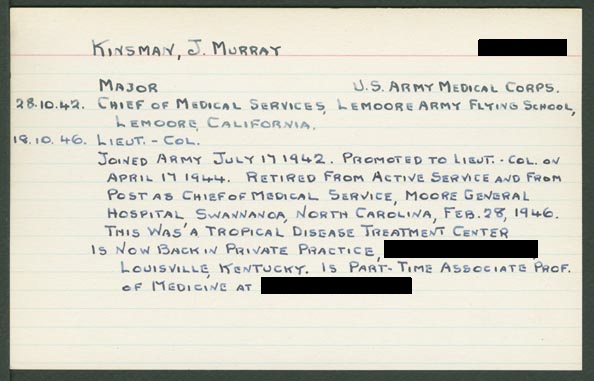 KINSMAN, J. MURRAY
MAJOR U.S. ARMY MEDICAL CORPS.
28.10.42. CHIEF OF MEDICAL SERVICES, LEMOORE ARMY FLYING SCHOOL,
LEMOORE, CALIFORNIA.
18.10.46. LIEUT.-COL.
JOINED ARMY JULY 17 1942. PROMOTED TO LIEUT.-COL. ON
APRIL 17 1944. RETIRED FROM ACTIVE SERVICE AND FROM
POST AS CHIEF OF MEDICAL SERVICE, MOORE GENERAL
HOSPITAL SWANNANOA, NORTH CAROLINA, FEB. 28, 1946.
THIS WAS A TROPICAL DISEASE TREATMENT CENTER
IS NOW BACK IN PRIVATE PRACTICE,
LOUISVILLE, KENTUCKY. IS PART-TIME ASSOCIATE PROF.
OF MEDICINE AT